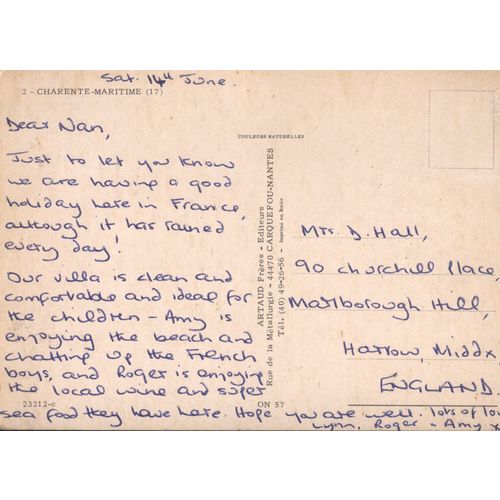 Sat. 14th June.
2 - CHARENTE-MARITIME (17)
Dear Nan,
Just to let you know
we are having a good
holiday here in France,
although it has rained
every day!
Our villa is clean and
comfortable and ideal for
the children - Amy is
enjoying the beach and
chatting up the French
boys, and Roger is enjoying
the local wine and super
sea food they have here. Hope you are well. lots of lov
Lynn, Roger - Amy x
23212-c
ON 57
COULEURS NATURELLES
ARTAUD Frères - Editeurs
Rue de la Métallurgie - 44470 CARQUEFOU-NANTES
Tél. (40) 49-26-56 - Imprimé en Italie
Mrs. D. Hall,
90 Churchill Place,
Marlborough Hill,
Harrow Middx
ENGLAND.